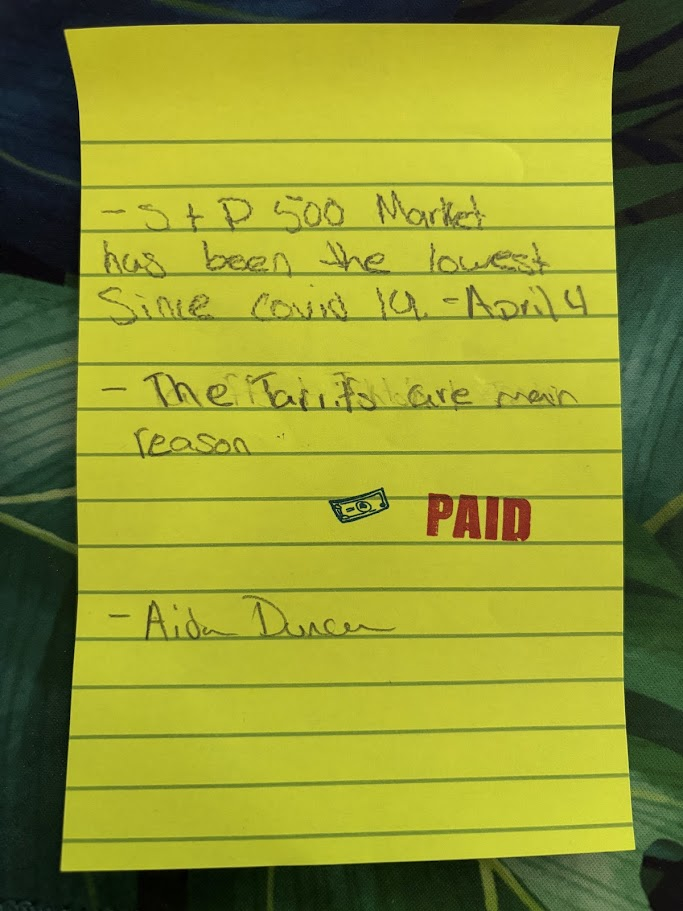 - S + P 500 Market
has been the lowest
Since Covid 19. - April 4
- The Tariffs are main
reason
PAID
- Aidan Duncan